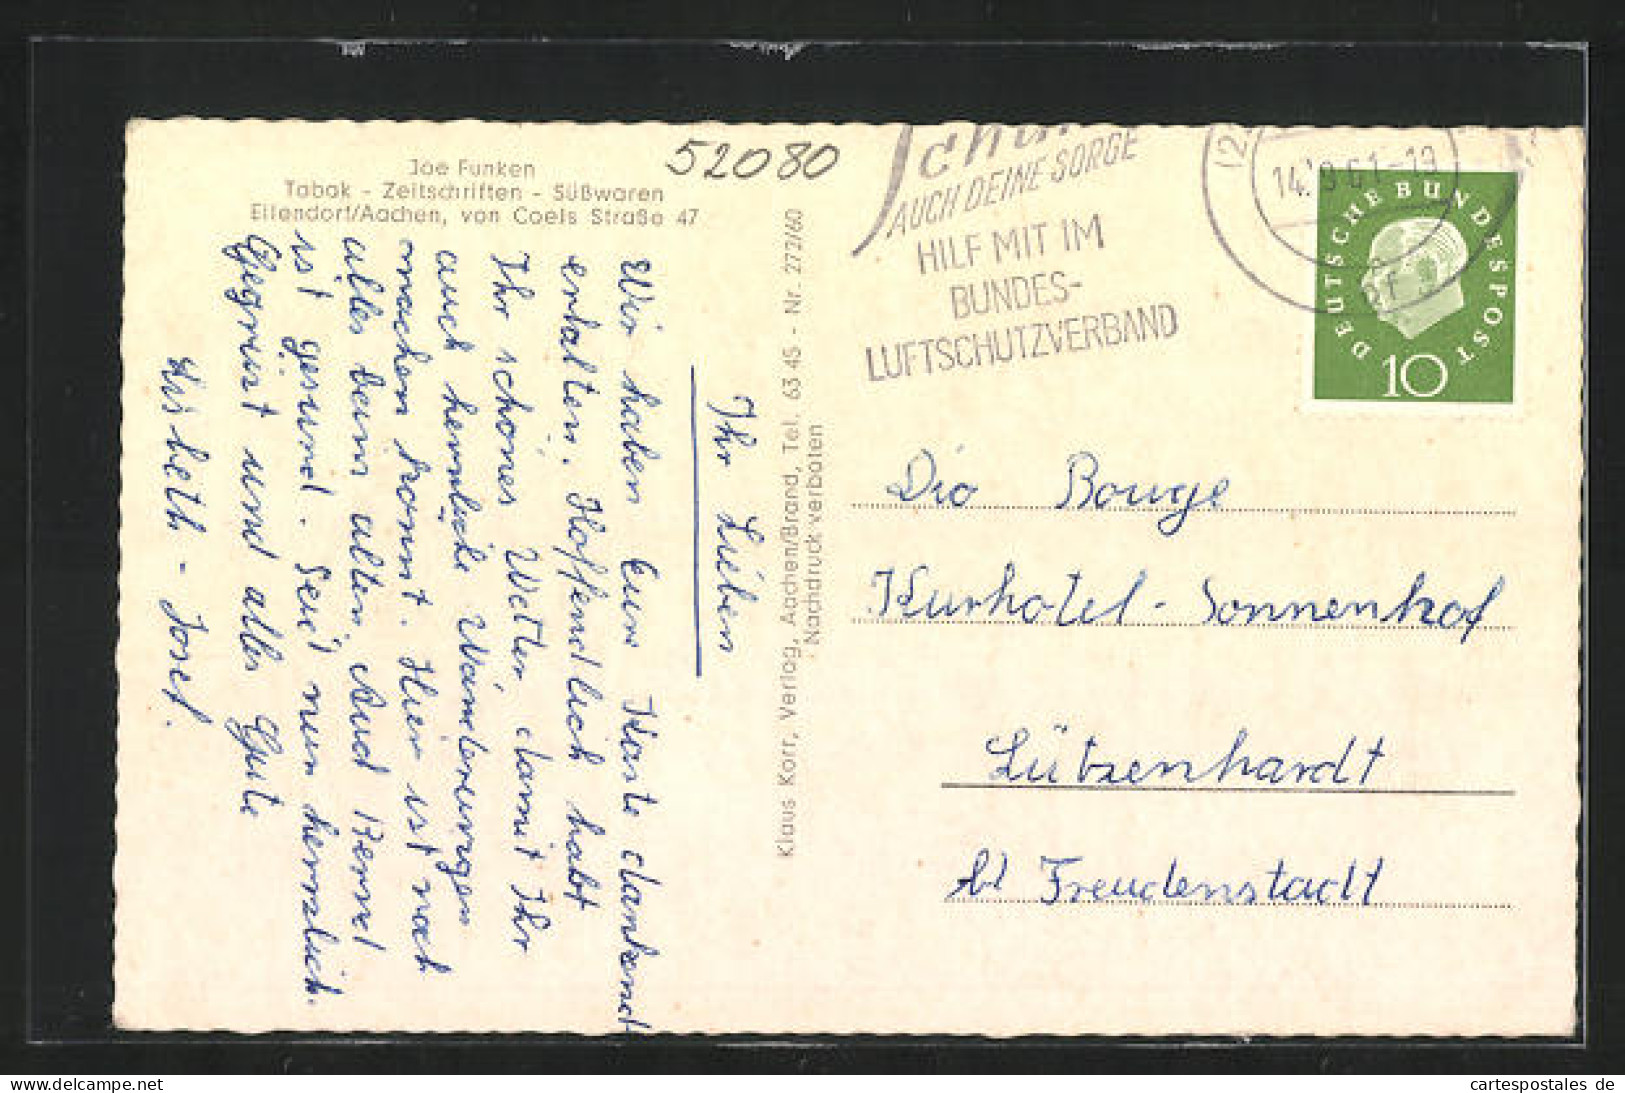 Joe Funken
Tabak - Zeitschriften - Süßwaren
Eilendorf/Aachen, von Coels Straße 47
52080
Ihr Lieben
Wir haben Eure Karte dankend
erhalten. Hoffendlich habt
Ihr schönes Wetter damit Ihr
auch herrliche Wanderungen
machen könnt. Hier ist noch
alles beim alten. Auch
ist gesund. Seid nun herzlich.
Gegrüst und alles Gute
Lisbeth - Josef.
Klaus Korr, Verlag, Aachen/Brand, Tel. 63 45 - Nr. 272/60
Nachdruck verboten
AUCH DEINE SORGE
HILF MIT IM
BUNDES-
LUFTSCHUTZVERBAND
14.9.61-19
DEUTSCHE BUNDESPOST
10
Bouge
Kurhotel - Sonnenhof
Lützenhardt
bl Freudenstadt
The-Seller
cartespostales de